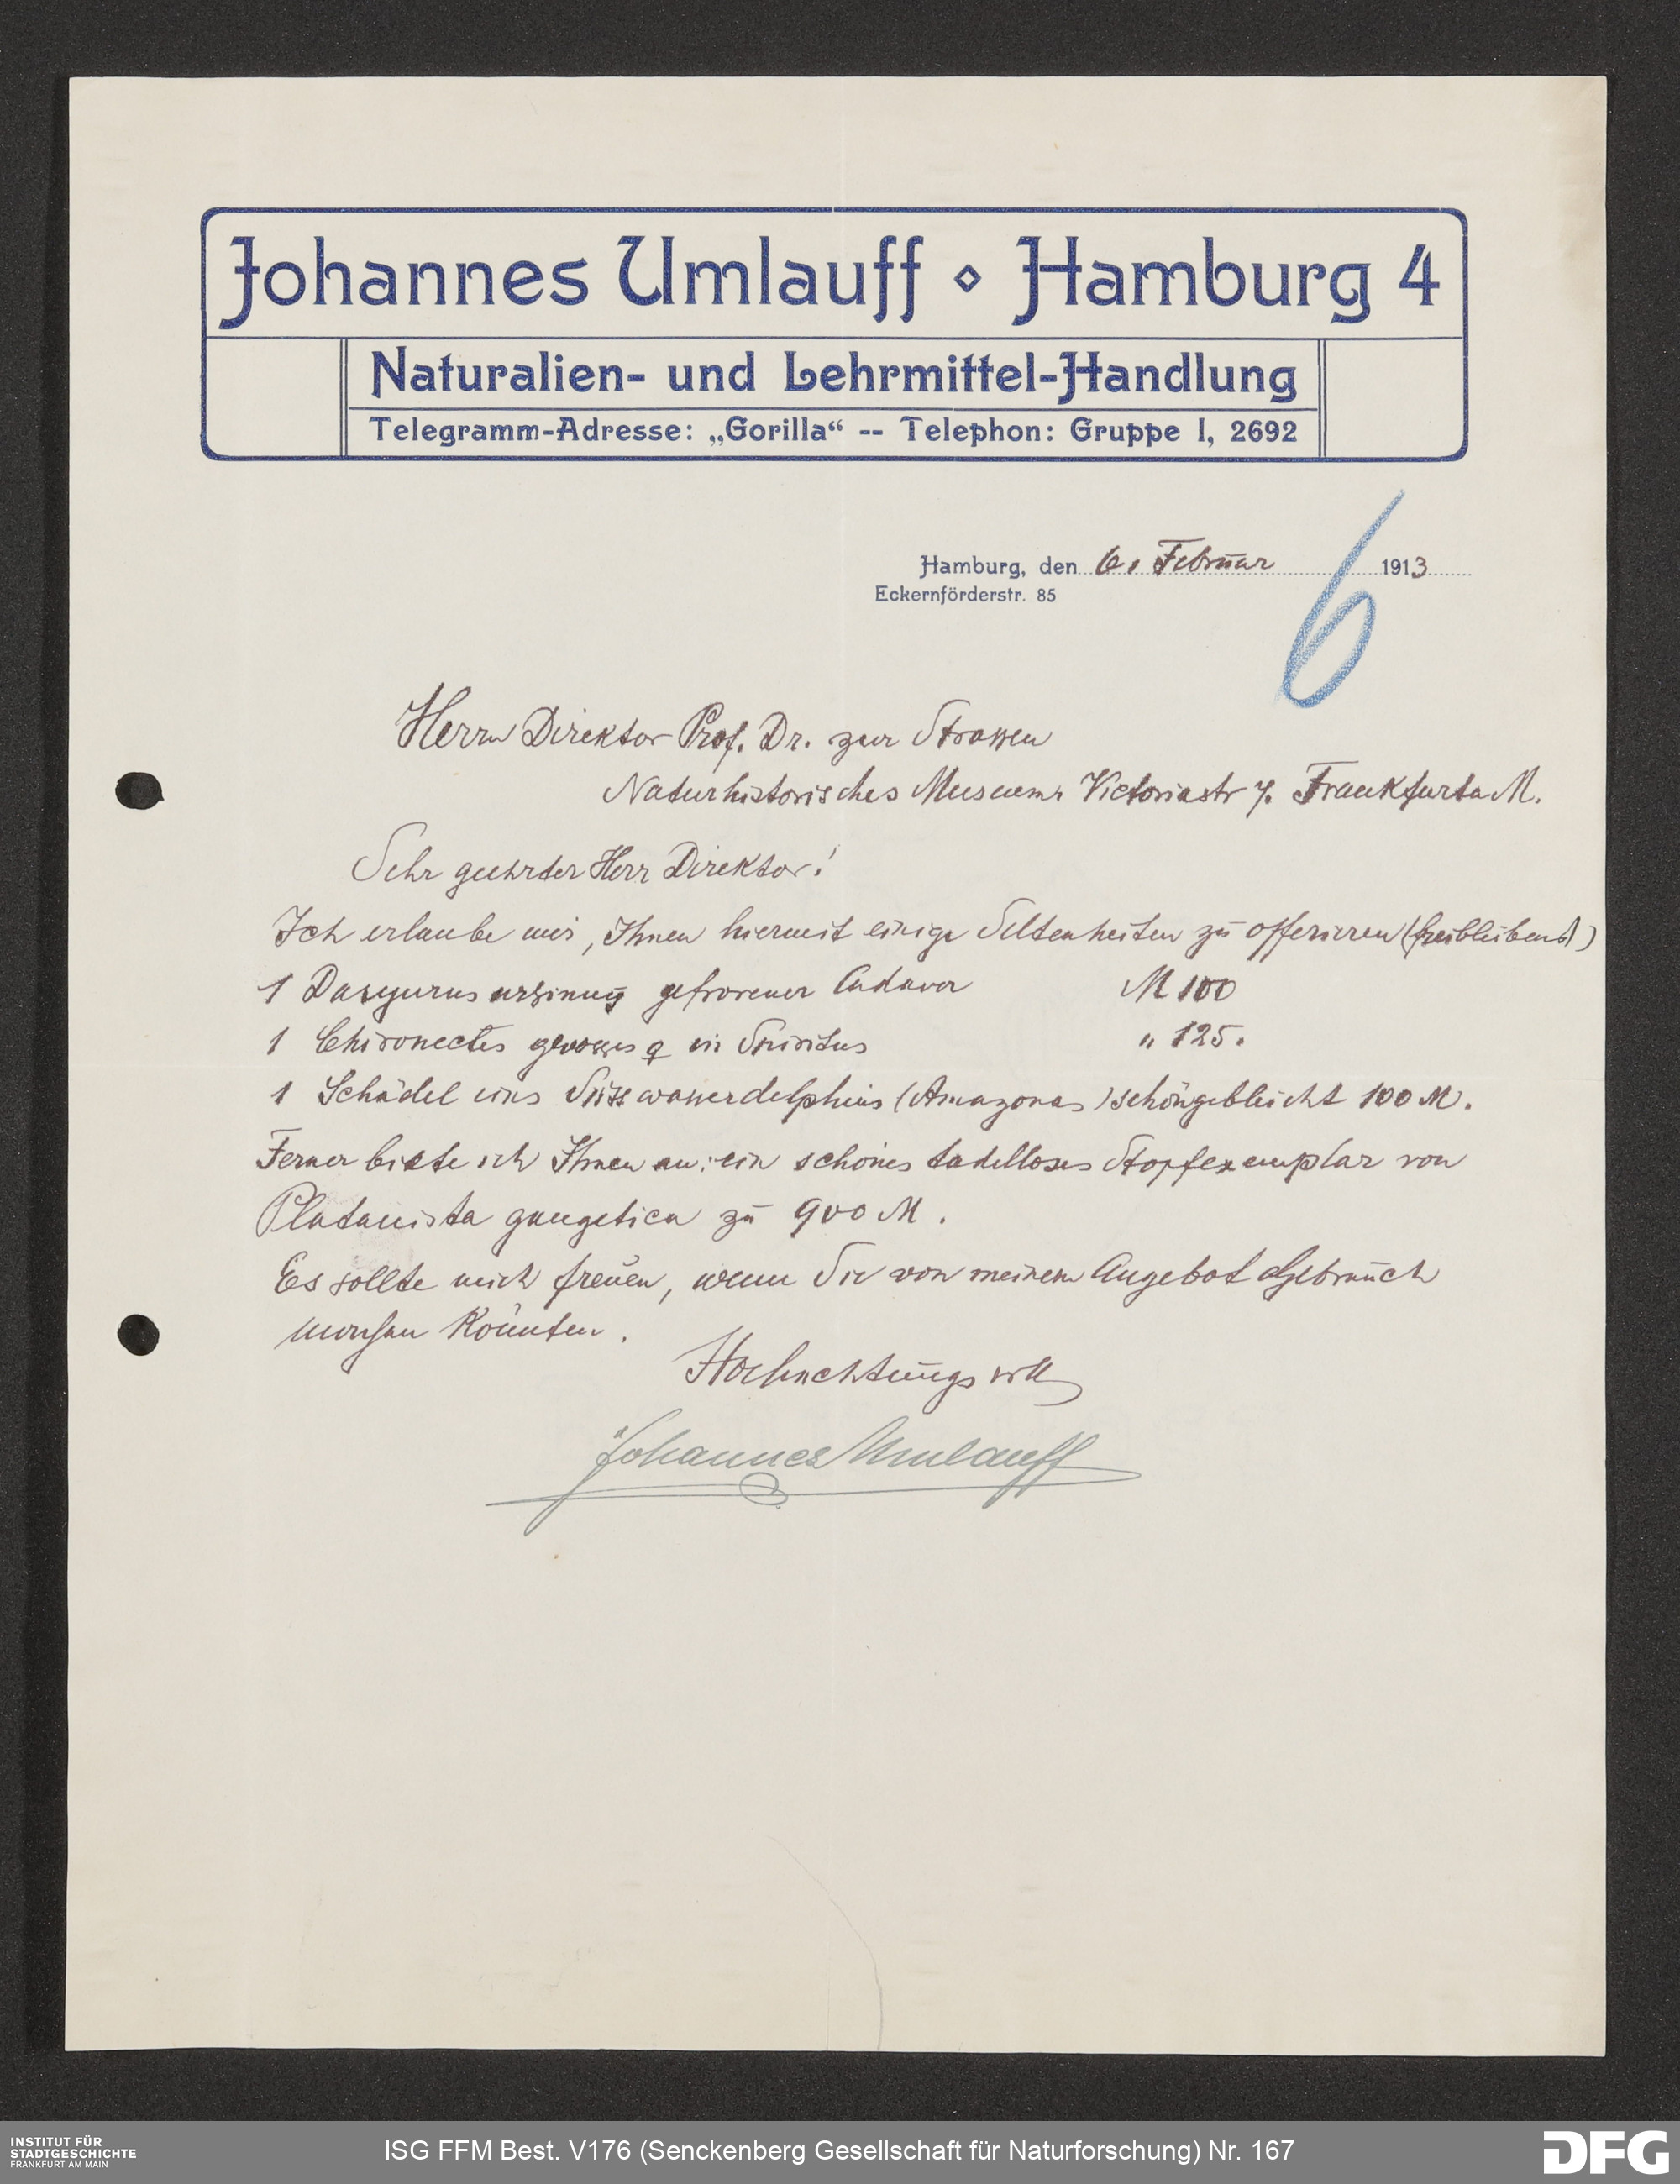 Johannes Umlauff ⋄ Hamburg 4
Naturalien- und Lehrmittel-Handlung
Telegramm-Adresse: „Gorilla“ -- Telephon: Gruppe I, 2692
6
Hamburg, den 6. Februar 1913
Eckernförderstr. 85
Herrn Direktor Prof. Dr. zur Strassen
Naturhistorisches Museum Victoriastr 7. Frankfurt a M.
Sehr geehrter Herr Direktor!
Ich erlaube mir, Ihnen hiermit einige Seltenheiten zu offerieren (freibleibend)
1 Dasyurus ursinus gefrorener Cadaver M 100
1 Chironectes grosses ♀ in Spiritus " 125.
1 Schädel eines Süsswasserdelphins (Amazonas) schön gebleicht 100 M.
Ferner biete ich Ihnen an: ein schönes tadelloses Stopfexemplar von
Platanista gangetica zu 900 M.
Es sollte mich freuen, wenn Sie von meinem Angebot Gebrauch
machen könnten.
Hochachtungsvoll
Johannes Umlauff
INSTITUT FÜR
STADTGESCHICHTE
FRANKFURT AM MAIN
ISG FFM Best. V176 (Senckenberg Gesellschaft für Naturforschung) Nr. 167
DFG